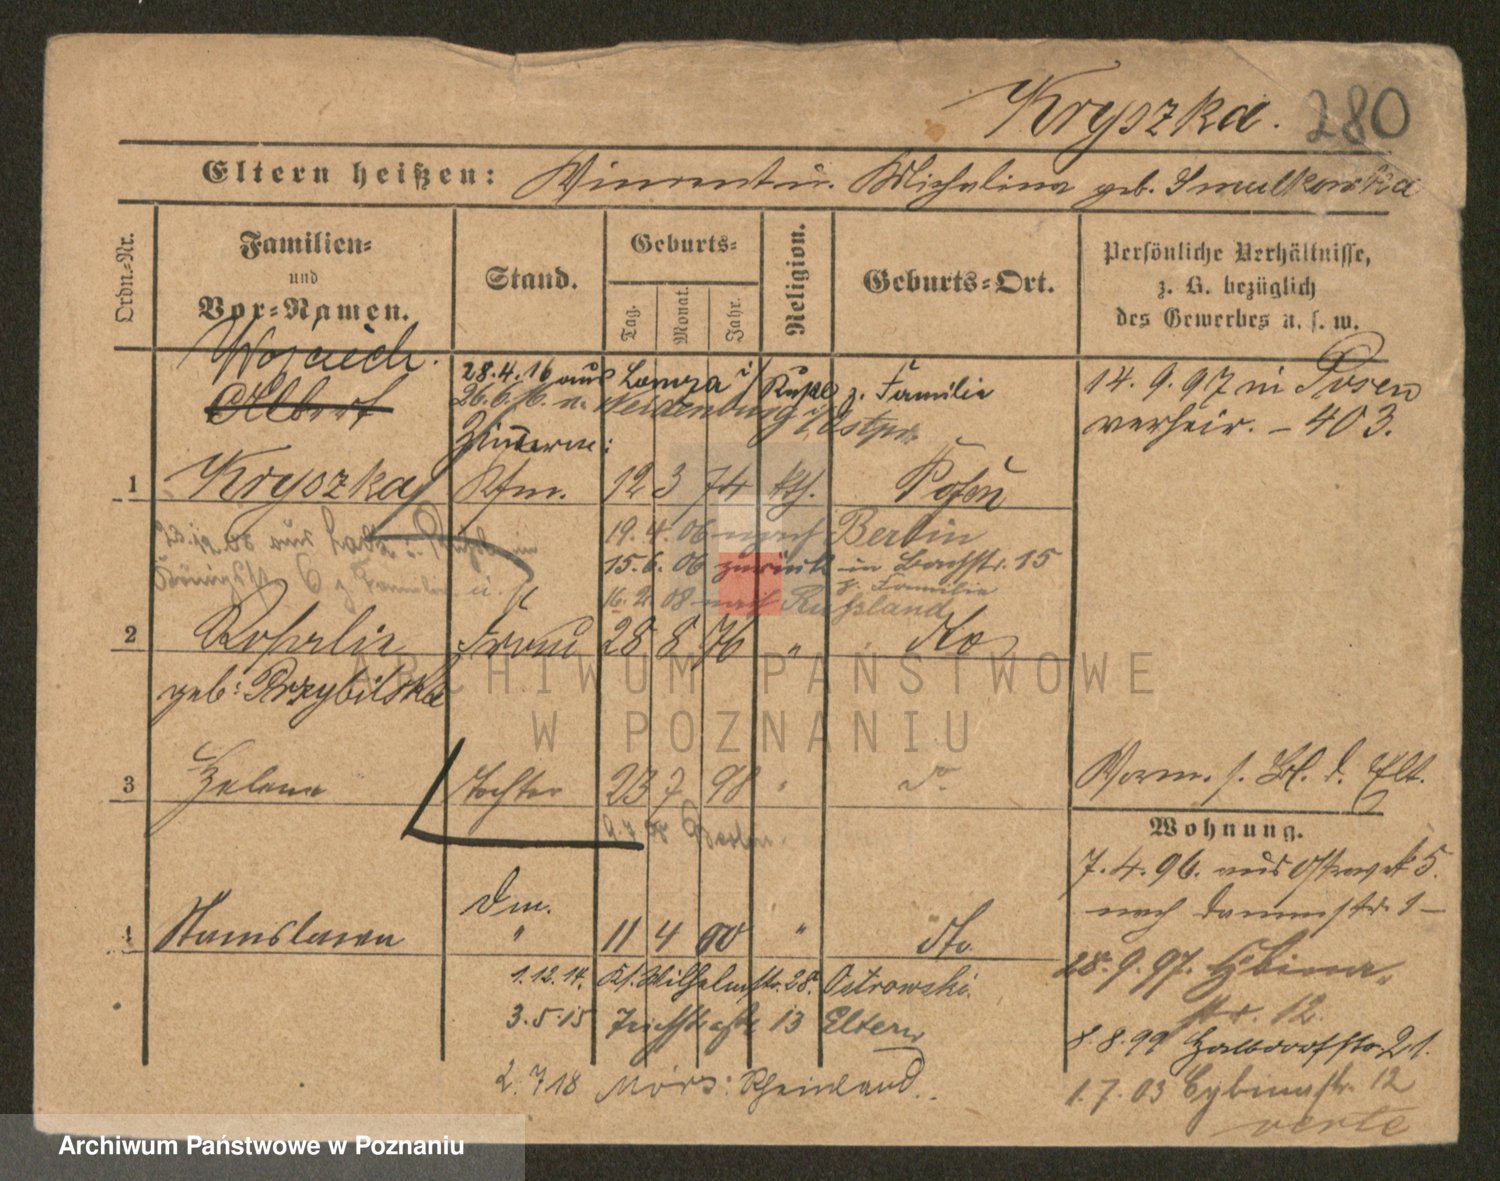 Kryszka. 280
Eltern heißen: Vincent u. Michalina geb. Smulkowska
Ordn.-Nr.
Familien- und Vor-Namen.
Stand.
Geburts-
Tag. Monat. Jahr.
Religion.
Geburts-Ort.
Persönliche Verhältnisse, z. B. bezüglich des Gewerbes u. s. w.
Wojciech.
Albert
28.4.16 aus Lomza i/ Rußl z. Familie
26.6.16. n. Neidenburg i/Ostpr.
14. 9. 97 in Posen
verheir. – 403.
Zimmerm:
1 Kryszka Kfm. 12 3 74 kth. Posen
19. 4. 06 nach Berlin
15. 6. 06 zurück in Bachstr. 15
z. Familie
16. 2. 08 nach Rußland
2 Rosalie Frau 28 8 76 " dto
geb: Przybilska
3 Helena Tochter 23 7 98 " do
Berlin.
Vorm. s. Bl. d. Elt.
Wohnung.
7. 4. 96. aus Ostrowek 5.
nach Dammstr. 1 –
28. 9. 97.
str. 12.
8. 8. 99 Halbdorfstr. 21.
1. 7. 03 Cybinastr. 12
verte
Dm.
4 Stanislawa " 11 4 00 " dto.
1. 12. 14. Kl. Wilhelmstr. 28. Ostrowski.
3. 5. 15 Teichstraße 13 Eltern
2. 7 18 Mörs: Rheinland.
ARCHIWUM PAŃSTWOWE
W POZNANIU
Archiwum Państwowe w Poznaniu